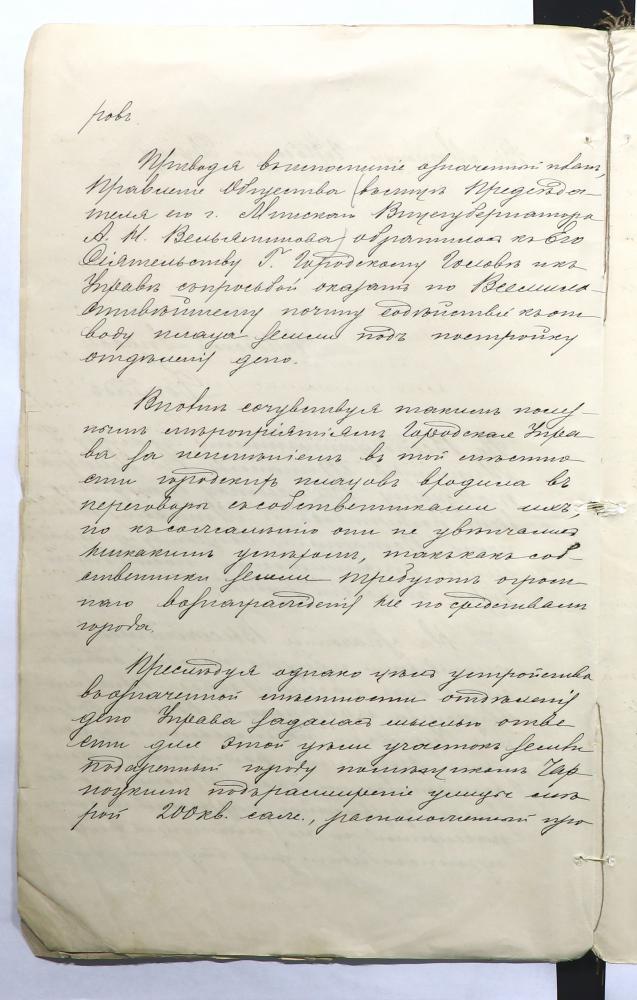 ровъ.
Приводя въ исполненіе означенный планъ,
Правленіе Общества (въ лицѣ Предсѣда-
теля по г. Минскаго Вицегубернатора
А. Н. Вельяминова) обратилось къ Его
Сіятельству Г. Городскому Головѣ и къ
Управѣ съ просьбой оказать по Всемило-
стивѣйшему почину содѣйствіе къ от
воду плаца земли подъ постройку
отдѣленія депо.
Вполнѣ сочувствуя такимъ полез-
нымъ мѣропріятіямъ Городская Упра
ва за неимѣніемъ въ той мѣстно
сти городскихъ плацовъ входила въ
переговоры съ собственниками ихъ,
но къ сожалѣнію они не увѣнчались
никакимъ успѣхомъ, такъ какъ соб
ственники земли требуютъ огром
наго вознагражденія не по средствамъ
города.
Преслѣдуя однако цѣль устройства
въ означенной мѣстности отдѣленія
депо Управа задалась мыслью отве
сти для этой цѣли участокъ земли
подаренный городу помѣщикомъ Чар
поцкимъ подъ расширеніе улицы мѣ
рой 200 кв. саж., расположенный про